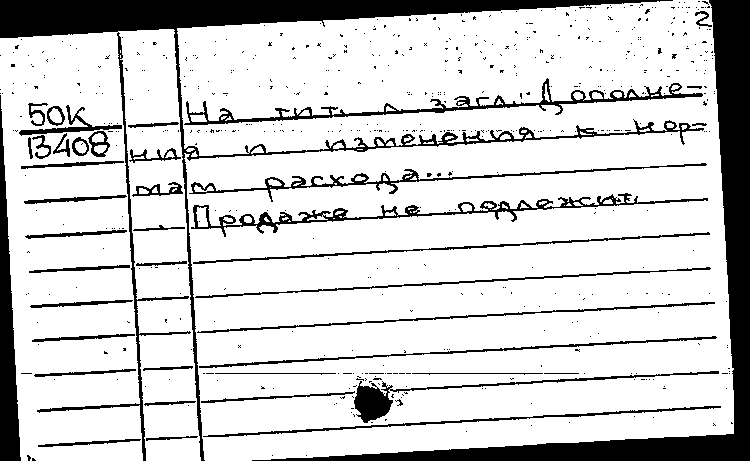 2
50К На тит. л загл.: Дополне-
13408 ния и изменения к нор-
мам расхода...
Продаже не подлежит.